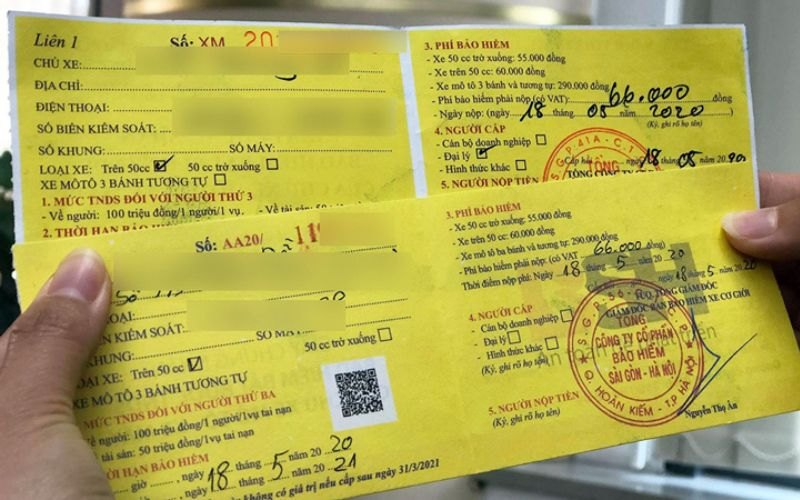 Liên 1
Số: XM 20
CHỦ XE:
ĐỊA CHỈ:
ĐIỆN THOẠI:
SỐ BIÊN KIỂM SOÁT:
SỐ KHUNG: SỐ MÁY:
LOẠI XE: Trên 50cc 50 cc trở xuống:
XE MÔTÔ 3 BÁNH TƯƠNG TỰ
1. MỨC TNDS ĐỐI VỚI NGƯỜI THỨ 3
- Về người: 100 triệu đồng/1 người/1 vụ. - Về tài sản: 50 triệu đồng/
2. THỜI HẠN BẢO
3. PHÍ BẢO HIỂM
- Xe 50 cc trở xuống: 55.000 đồng
- Xe trên 50 cc: 60.000 đồng
- Xe mô tô 3 bánh và tương tự: 290.000 đồng
- Phí bảo hiểm phải nộp (có VAT): 66.000 đồng
- Ngày nộp: (ngày 18 tháng 05 năm 2020
(Ký, ghi rõ họ tên)
4. NGƯỜI CẤP
- Cán bộ doanh nghiệp
- Đại lý
- Hình thức khác
Cấp ngày 18 tháng 05 năm 20 20
5. NGƯỜI NỘP TIỀN
TỔNG
Số: AA20/
THOẠI:
BIÊN KIỂM SOÁT:
KHUNG: SỐ MÁY
LOẠI XE: Trên 50 cc 50 cc trở xuống:
XE MÔ TÔ 3 BÁNH TƯƠNG TỰ
MỨC TNDS ĐỐI VỚI NGƯỜI THỨ BA
người: 100 triệu đồng/1 người/1 vụ tai nạn
tài sản: 50 triệu đồng/1 vụ tai nạn
HẠN BẢO HIỂM
giờ , ngày 18 tháng 5 năm 20 20
ngày 18 tháng 5 năm 20 21
không có giá trị nếu cấp sau ngày 31/3/2021
3. PHÍ BẢO HIỂM
- Xe 50 cc trở xuống: 55.000 đồng
- Xe trên 50 cc: 60.000 đồng
- Xe mô tô ba bánh và tương tự: 290.000 đồng
- Phí bảo hiểm phải nộp (có VAT) 66.000 đồng
Thời điểm nộp phí: Ngày 18 tháng 5 năm 20 20
ngày 18 tháng 5 năm 20 20
TUQ. TỔNG GIÁM ĐỐC
GIÁM ĐỐC BAN BẢO HIỂM XE CƠ GIỚI
4. NGƯỜI CẤP
- Cán bộ doanh nghiệp
- Đại lý
- Hình thức khác
(Ký, ghi rõ họ tên)
TỔNG
CÔNG TY CỔ PHẦN
BẢO HIỂM
SÀI GÒN - HÀ NỘI
Q. HOÀN KIẾM - T.P HÀ NỘI
5. NGƯỜI NỘP TIỀN
(Ký, ghi rõ họ tên)
Nguyễn Thọ Ân